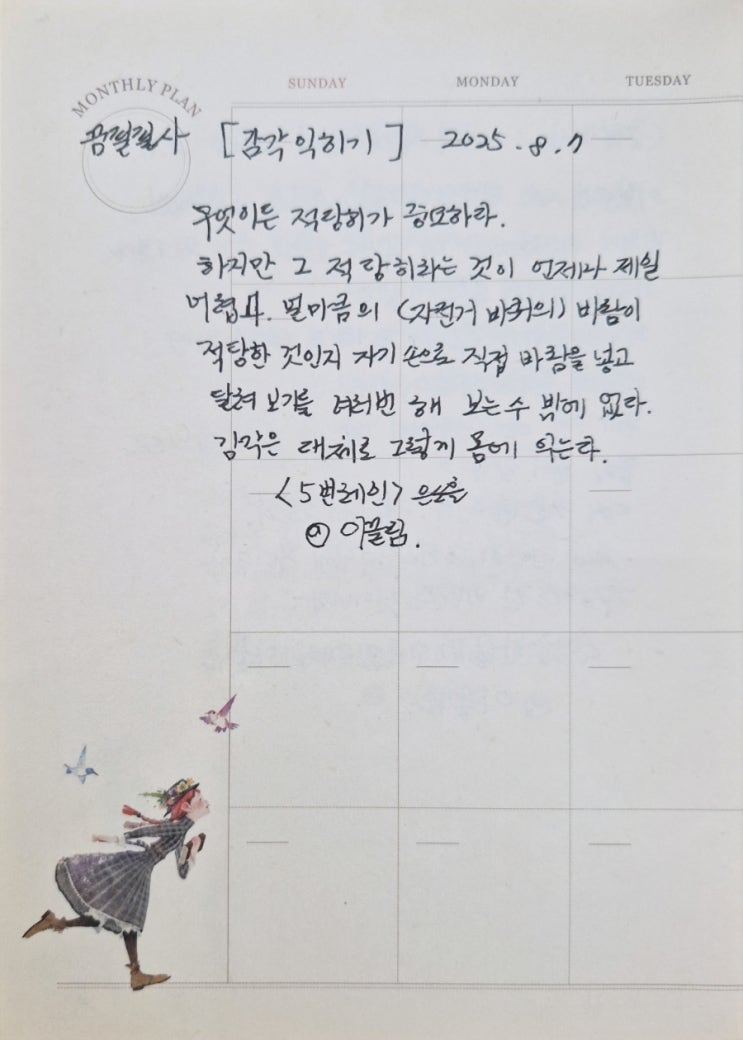 MONTHLY PLAN
SUNDAY MONDAY TUESDAY
꿈결필사 [감각 익히기] 2025.8.7
무엇이든 적당히가 중요하다.
하지만 그 적당히라는 것이 언제나 제일
어렵다. 얼마큼의 (자전거 바퀴의) 바람이
적당한 것인지 자기 손으로 직접 바람을 넣고
달려 보기를 여러번 해 보는 수 밖에 없다.
감각은 대체로 그렇게 몸에 익는다.
<5번레인> 은소홀
이끌림.